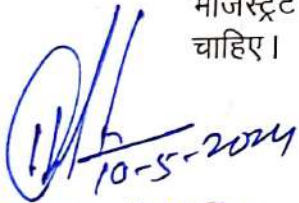 मजिस्ट्रेट
चाहिए।
10-5-2024